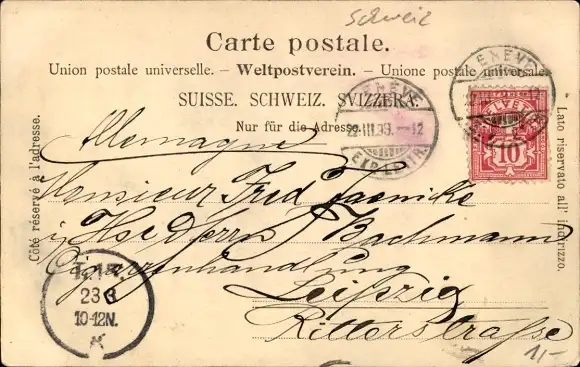 Schweiz
Carte postale.
Union postale universelle. – Weltpostverein. – Unione postale universale.
SUISSE. SCHWEIZ. SVIZZERA.
Nur für die Adresse.
Côté réservé à l'adresse.
Lato riservato all' indirizzo.
GENÈVE
22.III.99.–12
EXP. LETTR.
GENÈVE
HELVETIA
10
Allemagne
Monsieur Fred Jaenicke
Bachmann
Cigarrenhandlung
Leipzig
Ritterstrasse
23 3
10-12N.
1,-